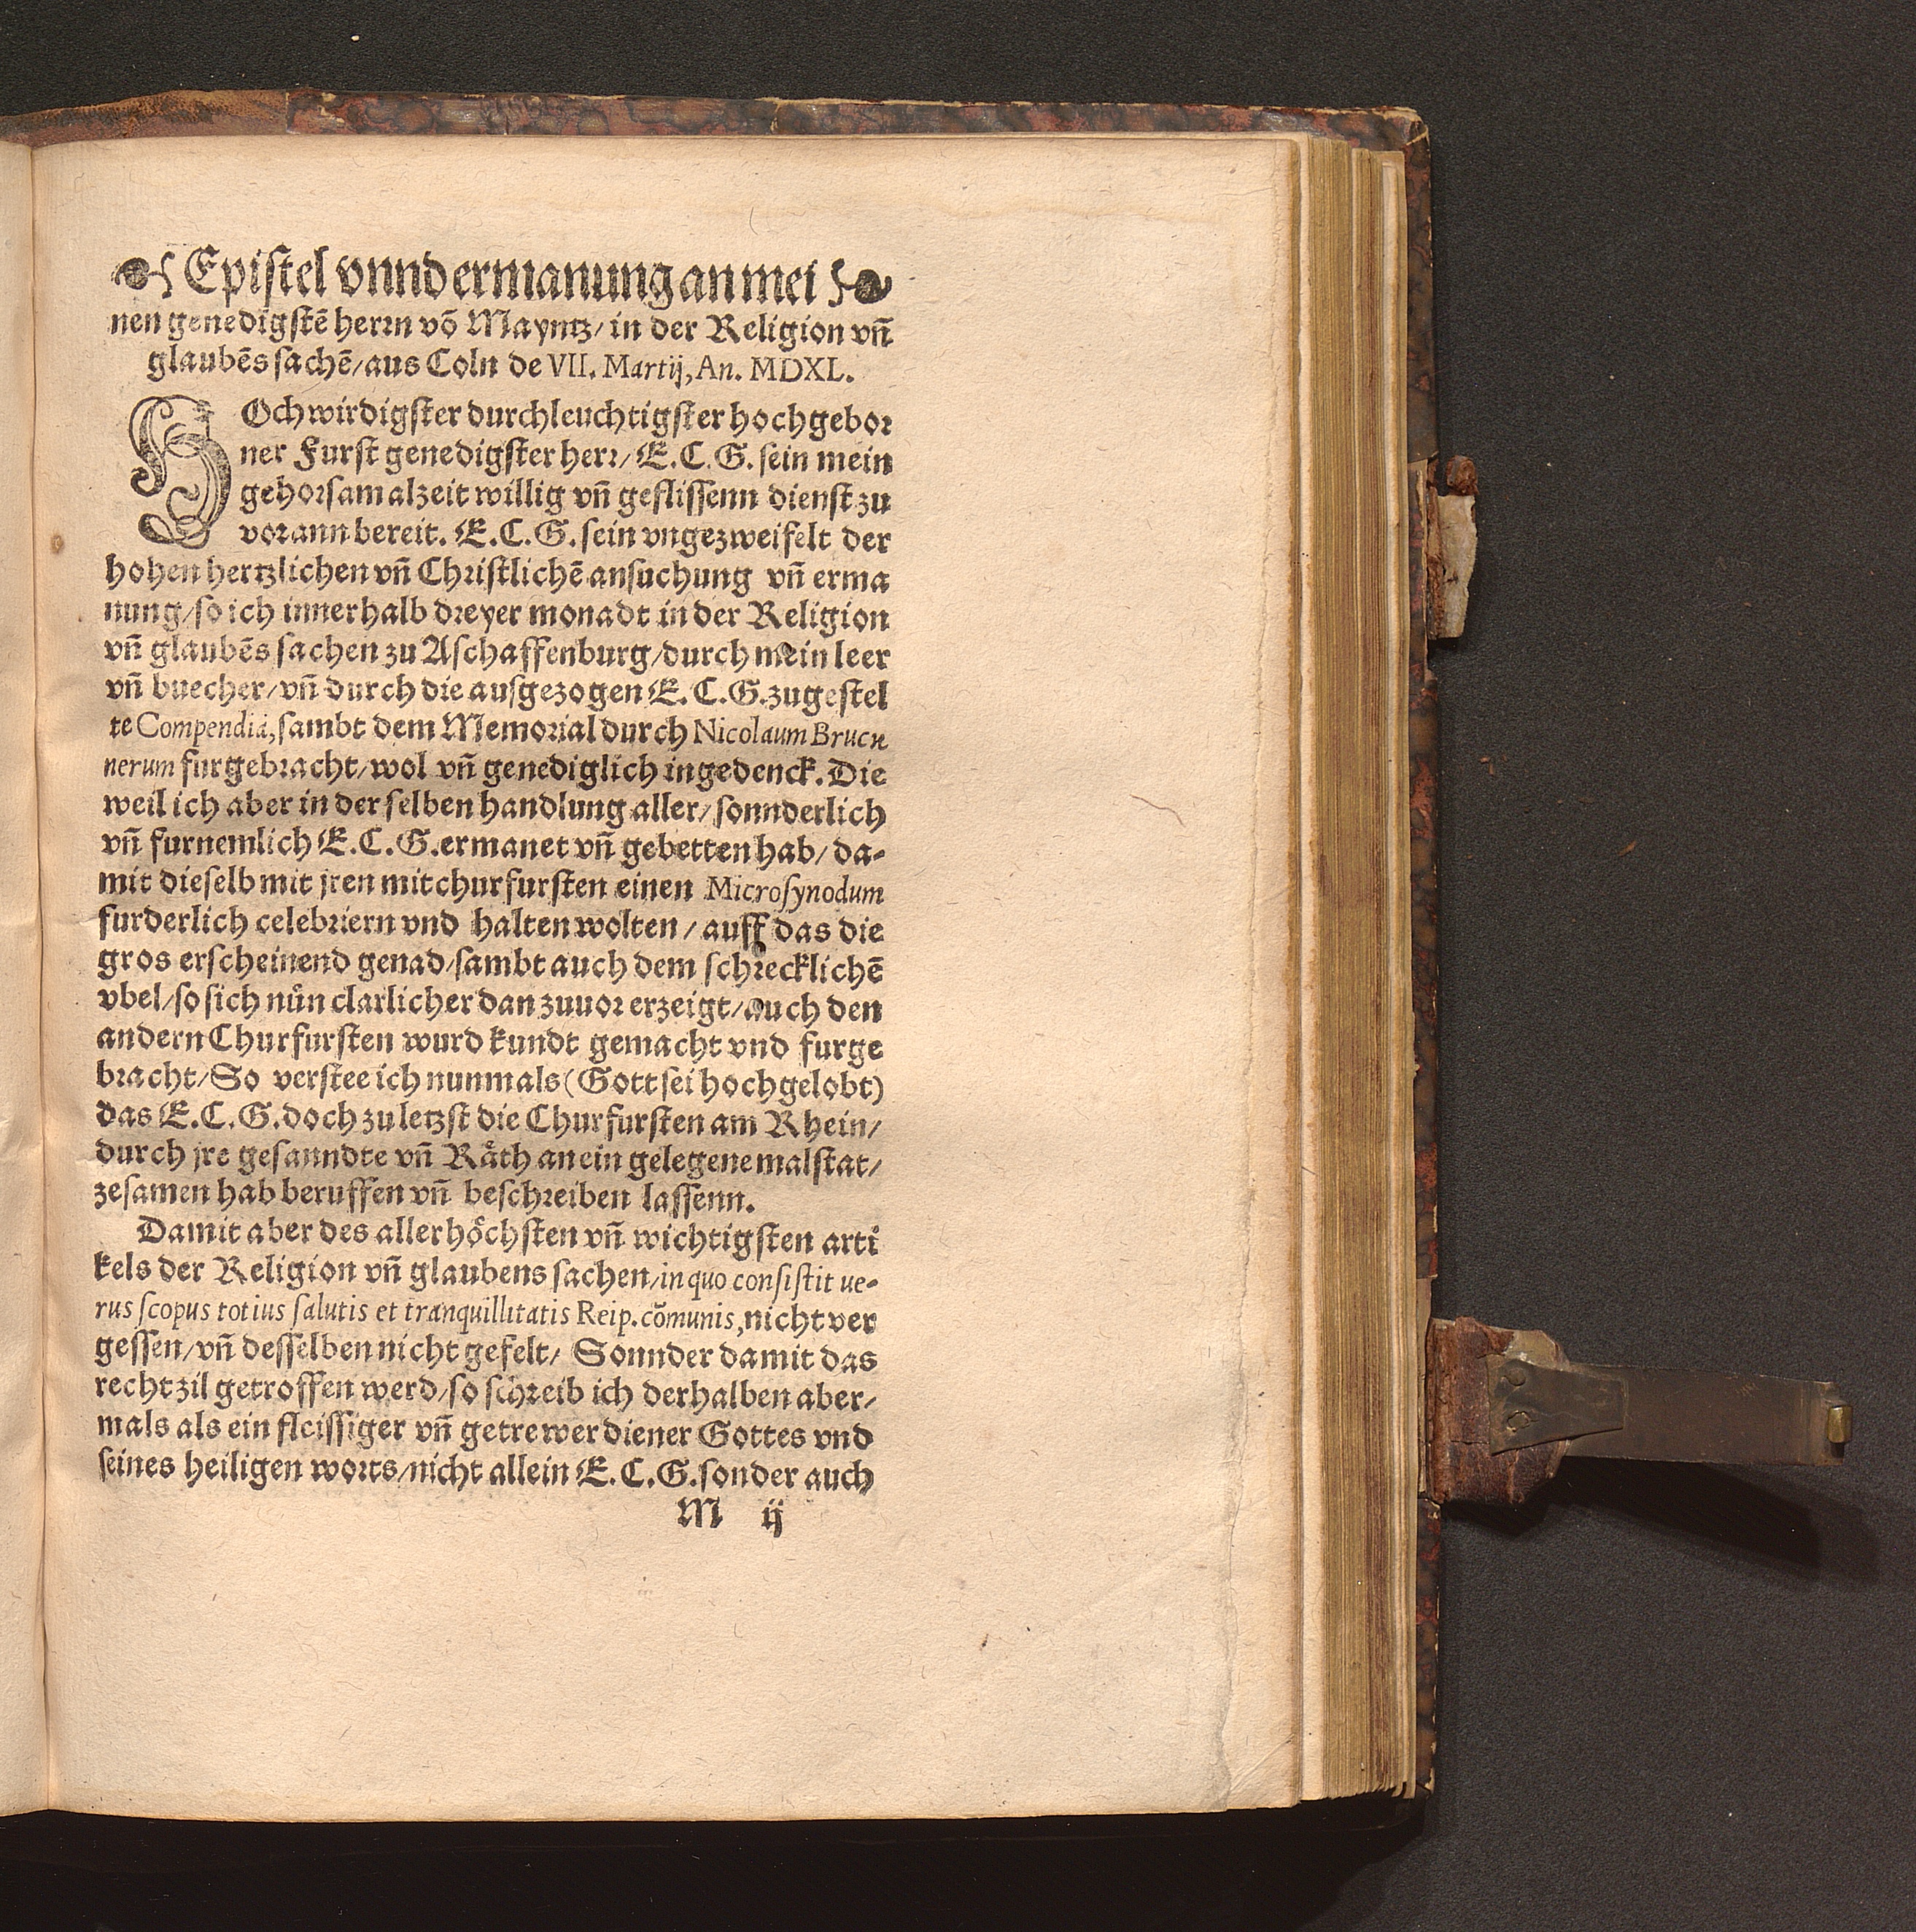 Epistel vnnd ermanung an mei
nen genedigstē herrn vō Mayntz/ in der Religion vñ
glaubēs sachē/ aus Coln de VII. Martij, An. MDXL.
HOchwirdigster durchleuchtigster hochgebor
ner Furst genedigster herr/ E.C.G. sein mein
gehorsam alzeit willig vñ geflissenn dienst zu
vorann bereit. E.C.G. sein vngezweifelt der
hohen hertzlichen vñ Christlichē ansuchung vñ erma
nung/ so ich innerhalb dreyer monadt in der Religion
vñ glaubēs sachen zu Aschaffenburg/ durch mein leer
vñ buecher/ vñ durch die ausgezogen E.C.G. zugestel
te Compendia, sambt dem Memorial durch Nicolaum Bruck
nerum furgebracht/ wol vñ genediglich ingedenck. Die
weil ich aber in der selben handlung aller/ sonnderlich
vñ furnemlich E.C.G. ermanet vñ gebetten hab/ da-
mit dieselb mit jren mitchurfursten einen Microsynodum
furderlich celebriern vnd halten wolten/ auff das die
gros erscheinend genad/ sambt auch dem schrecklichē
vbel/ so sich nůn clarlicher dan zuuor erzeigt/ auch den
andern Churfursten wurd kundt gemacht vnd furge
bracht/ So verstee ich nunmals (Gott sei hochgelobt)
das E.C.G. doch zu letzst die Churfursten am Rhein/
durch jre gesanndte vñ Räth an ein gelegene malstat/
zesamen hab beruffen vñ beschreiben lassenn.
Damit aber des allerhöchsten vñ wichtigsten arti
kels der Religion vñ glaubens sachen/ in quo consistit ue-
rus scopus totius salutis et tranquillitatis Reip. cōmunis, nicht ver
gessen/ vñ desselben nicht gefelt/ Sonnder damit das
recht zil getroffen werd/ so schreib ich derhalben aber-
mals als ein fleissiger vñ getrewer diener Gottes vnd
seines heiligen worts/ nicht allein E.C.G. sonder auch
M ij